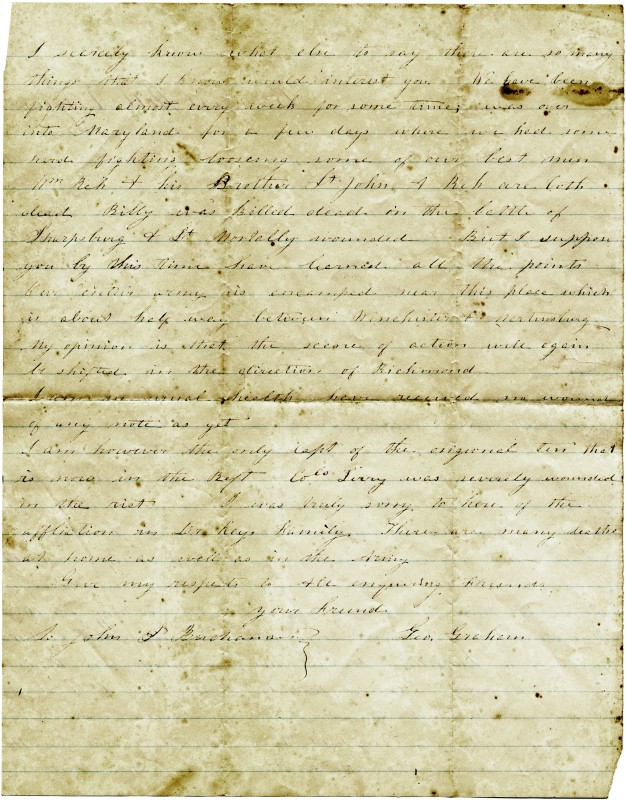 I scarcely know what else to say there are so many
things that I know would interest you We have been
fighting almost every week for some time, was over
into Maryland for a few days where we had some
hard fighting loosing some of our best men
Wm Reh & his Brother Lt John A Reh are both
dead Billy was killed dead in the battle of
Sharpsburg & Lt Mortally wounded But I suppose
you by this time have learned all the points
Our entire army is encamped near this place which
is about half way between Winchester &
My opinion is that the scene of action will again
be shifted in the direction of Richmond
I am in usual health have received no wound
of any note as yet
I am however the only capt of the origional ten that
is now in the Regt Col Terry was severely wounded
in the rist I was truly sorry to hear of the
affliction in Dr Keys Family. There are many deaths
at home as well as in the Army
Give my respects to all enquiring friends
your friend
To John Buchanan Geo. Graham